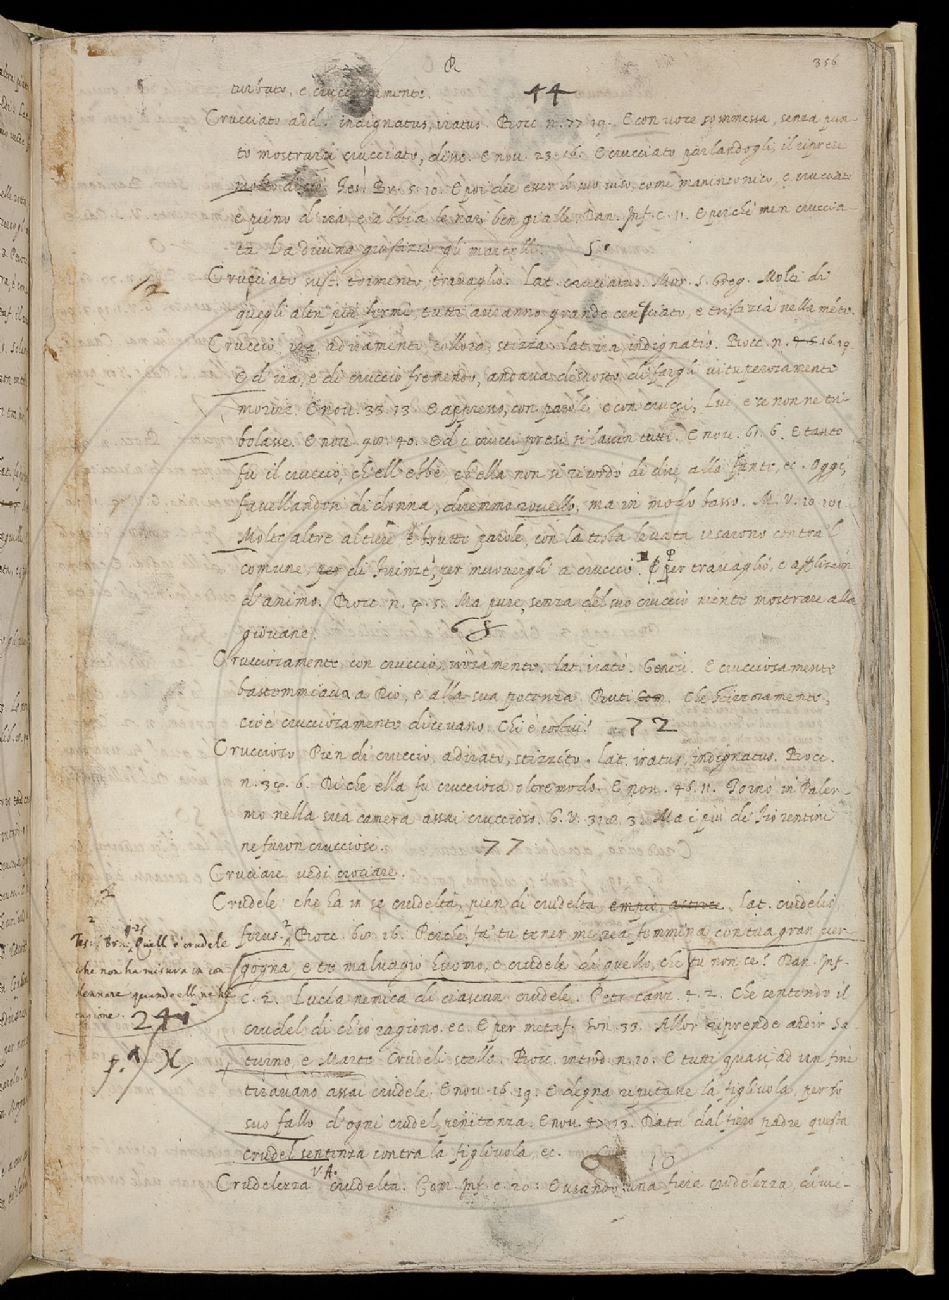 R
356
turbato, e crucciosamente.
44
Crucciato add. indignatus, iratus. Bocc. n. 77 19. E con voce sommessa, senza pun-
to mostrarsi crucciato, disse. E nov. 23. 16. E crucciato parlandogli, il riprese
molto di ciò. Tes. Br. 5. 10. E poi dee aver lo suo viso, come maninconico, e crucciato
e pieno d'ira, e abbia le nari ben gialle. Dan. Inf. c. 11. E perchè men cruccia-
ta La divina giustizia gli martelli. 5.
Crucciato sust. tormento, travaglio. Lat. cruciatus. Mor. S. Greg. Molti di
quegli altri più fermi, tutti avranno grande cruciato, e tristizia nella mente.
12
Cruccio, ira, adiramento, collora, stizza. lat. ira, indignatio. Bocc. n. 16. 19
E d'ira, e di cruccio fremendo, andava disposto, di fargli vituperosamente
morire. E nov. 33. 13. E appresso, con paroli e con crucci, Lui e se non ne tri-
bolasse. E nov. 40. Ed i crucci presi si lascin tutti. E nov. 61. 6. E tanto
fu il cruccio, ch'ell'ebbe ch'ella non si ricordò di dire alla fante, ec. Oggi,
favellandosi di donna, diremmo rovello, ma in modo basso. M. V. 10. 101
Molte altre altiere e brutte parole, con la testa levata usarono contra'l
comune di Firenze, per muovergli a cruccio. per travaglio, e afflizion
d'animo. Bocc. n. 9. 5. Ma pure, senza del suo cruccio niente mostrare alla
giovane.
Crucciosamente con cruccio, irosamente. lat. iratè. Genesi. E crucciosamente
bastemmiava a Dio, e alla sua potenza. Buti. Che bizzosamente,
cioè crucciosamente dicevano. Chi è costui? 72
Cruccioso Pien di cruccio, adirato, stizzito. lat. iratus, indignatus. Bocc.
n. 39. 6. Di che ella fu cruciosa oltremodo. E nov. 46. 11. Tornò in Paler-
mo nella sua camera assai cruccioso. G. V. 31. 8. 3. Ma i più de' Fiorentini
ne furon crucciosi. 77
Cruciare vedi crociare.
Crudele che ha in se crudeltà, pien di crudeltà empio, atroce. lat. crudelis
ferus. Bocc. 60. 16. Perchè fa' tu tener mia femmina con tua gran ver-
gogna, e tro malvagio huomo, e crudele di quello, che tu non se'? Dan. Inf.
C. 2. Lucia nimica di ciascun crudele. Petr. canz. 4. 2. Che sentendo il
crudel di ch'io ragiono. ec. E per metaf. Son. 33. Allor riprende ardir Sa-
turno, e Marte Crudeli stelle. Bocc. introd. n. 10. E tutti quasi ad un fine
tiravano assai crudele. E nov. 16. 19. E degna reputa ve la figliuola, per lo
suo fallo d'ogni crudel penitenza. E nov. 47. 13. Data dal fiero padre questa
crudel sentenza contra la figliuola, ec. 10
Crudelezza V.A. crudeltà. Com. Inf. c. 20. E usando una fiera crudelezza, cuci-
Tes. Br. Quell'è crudele
che non ha misura in con
dennare quando elli ne ha
cagione. 241